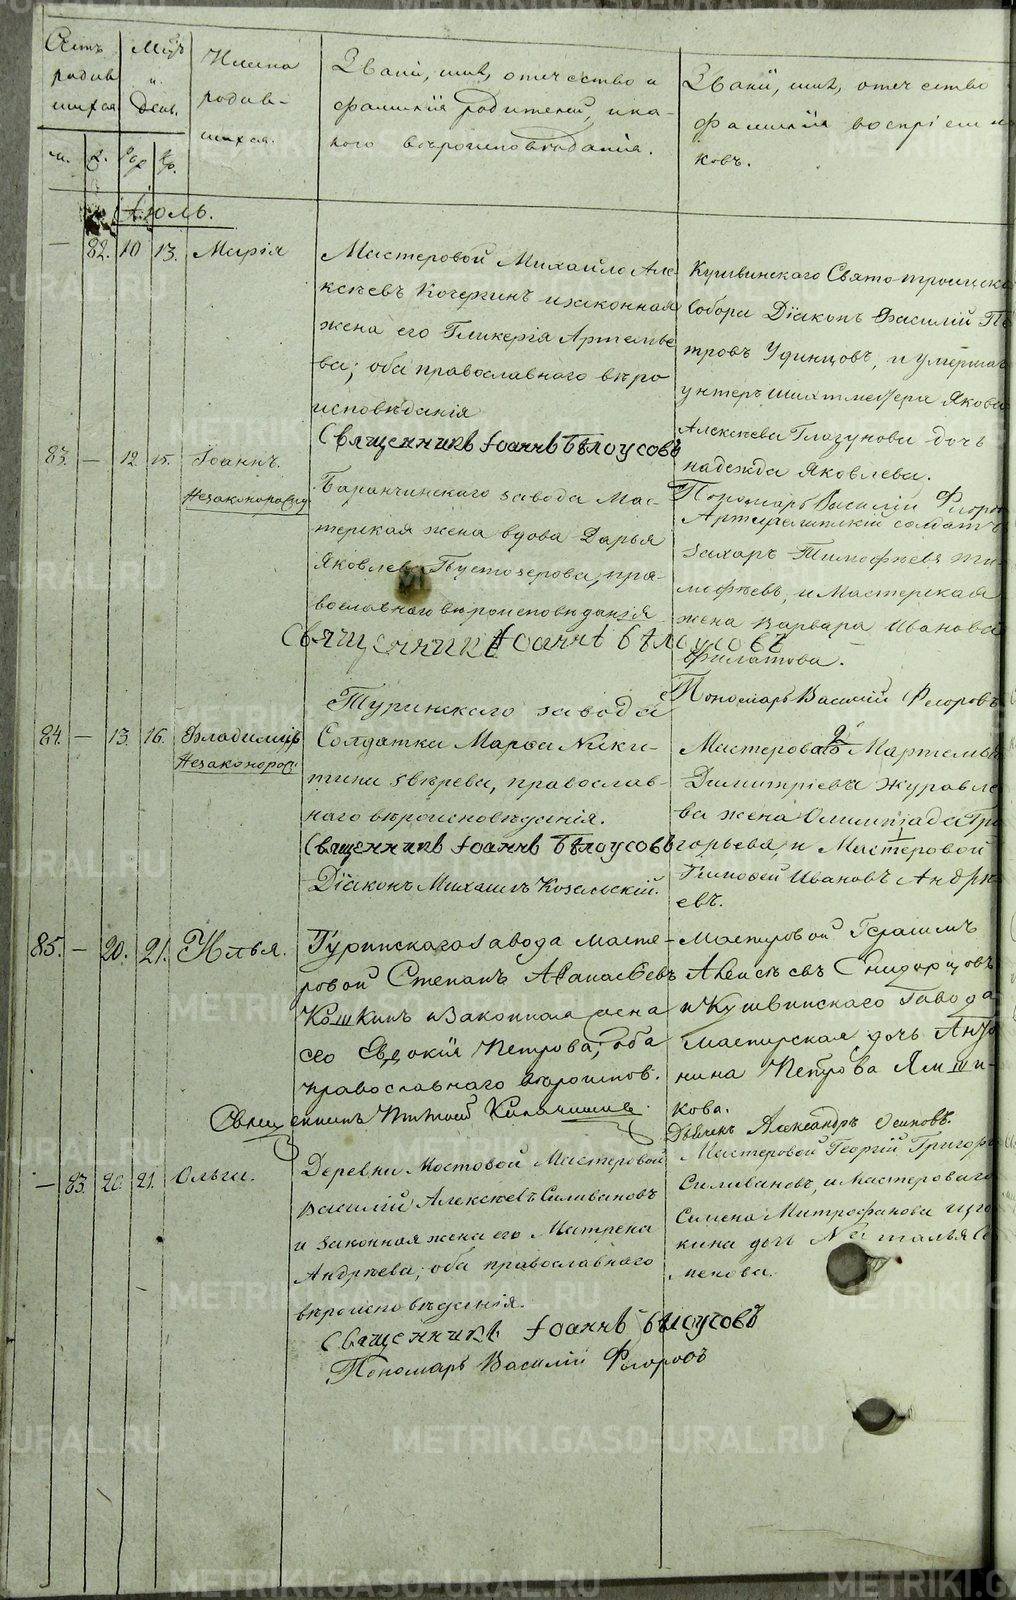 Счетъ родив шихся
Мѣсяцъ и День.
Имена родив-
шихся.
Званіе, имя, отчество и
фамилія родителей, и ка-
кого вѣроисповѣданія.
Званіе, имя, отчество
фамилія воспріемни
ковъ.
м. ж. рож кр.
Іюль.
— 82. 10 13. Марія
Мастеровой Михайло Але-
ксѣевъ Кочегинъ и законная
жена его Гликерія Артемье
ва; оба православнаго вѣро
исповѣданія
Священникъ Іоаннъ Бѣлоусовъ
Кушвинскаго Свято Троицка
собора Діаконъ Василій Пе
тровъ Удинцовъ, и умершаго
унтеръ шихтмейстера Якова
Алексѣева Глазунова дочь
надежда Яковлева.
Пономарь Василій Флоровъ
83. — 12 15. Іоаннъ.
незаконорожд
Баранчинскаго завода Мас-
терская жена вдова Дарья
Яковлева Пустозерова, пра-
вославнаго вѣроисповѣданія
Священникъ Іоаннъ Бѣлоусовъ
Артиллейскій солдатъ
Захаръ Тимофѣевъ Ти
мофѣевъ, и Мастерская
жена Варвара Иванова
Филатова.
Пономарь Василій Флоровъ
84. — 13. 16. Владиміръ
незаконорож
Туринскаго завода
Солдатка Марѳа Ники-
тина Звѣрева, православ-
наго вѣроисповѣданія.
Священникъ Іоаннъ Бѣлоусовъ
Діаконъ Михаилъ Козельскій.
Мастероваго Мартемья
Димитріева Журавле
ва жена Олимпіада Гри
горьева, и Мастеровой
Тимофей Ивановъ Андре
евъ.
85. — 20. 21. Илья.
Туринскаго завода масте-
ровой Степанъ Аѳанасьевъ
Кошкинъ и законная жена
его Евдокія Петрова; оба
православнаго вѣроиспов.
Мастеровой Герасимъ
Алексѣевъ Снидорцовъ
и Кушвинскаго Завода
Мастерская дочь Анто
нина Петрова Ямши-
кова.
Дьячекъ Александръ Осиповъ.
— 83. 20. 21. Ольга.
Деревни Мостовой Мастеровой
Василій Алексѣевъ Силивановъ
и законная жена его Матрена
Андрѣева; оба православнаго
вѣроисповѣданія.
Священникъ Іоаннъ Бѣлоусовъ
Пономарь Василій Флоровъ
Мастеровой Георгій Григорь
Силивановъ, и Мастероваго
Семена Митрофанова
кина дочь Наталья Се
менова.
METRIKI.GASO-URAL.RU